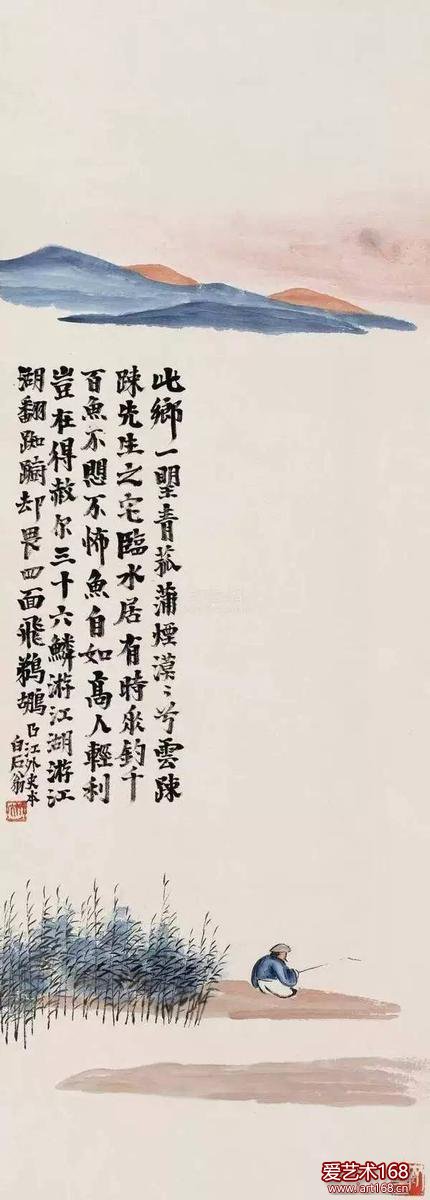 此鄉一朢青菰蒲煙漠〻兮雲踈
踈先生之宅臨水居有時垂釣千
百魚不愳不怖魚自如高人輕利
豈在得赦尔三十六鱗游江湖游江
湖翻踟躕却畏四面飛鵜鶘
江外史本
白石翁
爱艺术168
www.art168.cn